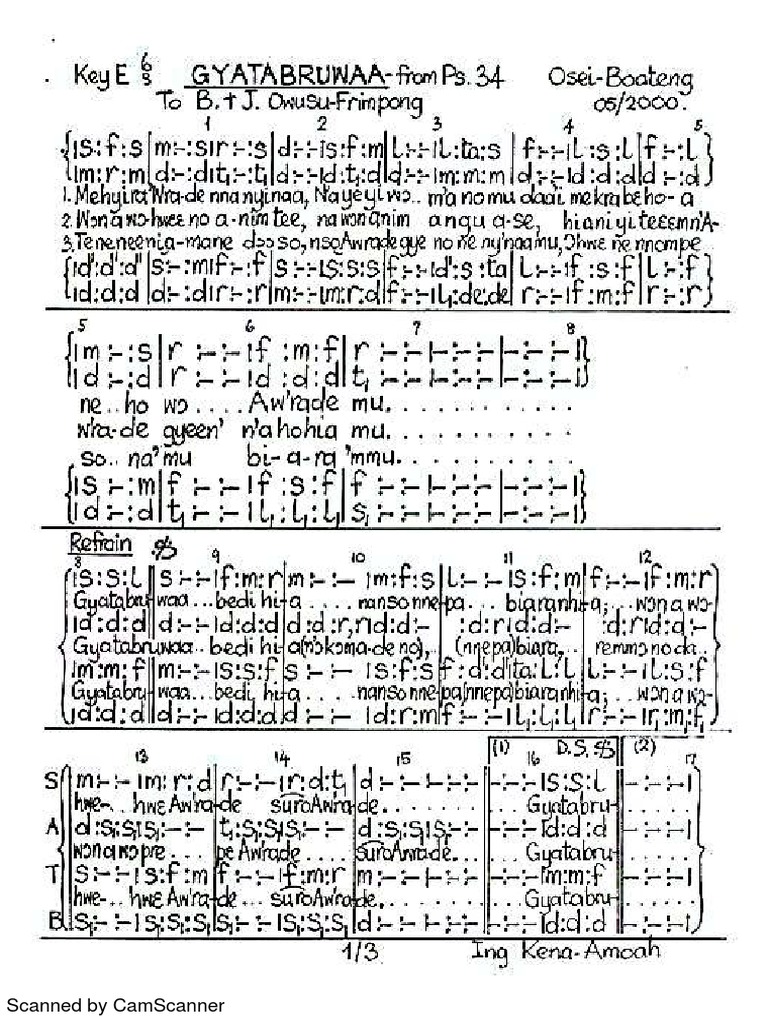 Key E 6/8 GYATABRUWAA-from Ps. 34 Osei-Boateng
To B. + J. Owusu-Frimpong 05/2000.
1 2 3 4 5
{|s:f:s|m:-:s|r:-:s|d:-:-|s:f:m|l:-:-|l:ta:s|f:-:-|l:s:l|f:-:l}
|m:r:m|d:-:d|t₁:-:t₁|d:-:t₁|d:t₁:d|d:-:-|m:m:m|d:-:-|d:d:d|d:-:d
1. Mehyira 'Wra-de nna nyinaa, N'ayeyi wɔ.. m'ano mu daai mekra be ho-a
2. Wɔn a wo-hwɛɛ no a-nim tee, na wɔn anim angu a-se, hiani yi teɛɛm n'A-
3. Teneneenia-mane dɔɔso, nso Awrade gye no ne ny'naa mu, Ɔhwɛ ne nnompe
{|d':d':d'|s:-:m|f:-:f|s:-:-|s:s:s|f:-:-|d':s:ta|l:-:-|f:s:f|l:-:f}
|d:d:d|d:-:d|r:-:r|m:-:-|m:r:d|f:-:-|l₁:de:de|r:-:-|f:m:f|r:-:r
5 6 7 8
{|m:-:s|r:-:-|f:m:f|r:-:-|-:-:-|-:-:-|-:-:-|}
|d:-:d|r:-:-|d:d:d|t₁:-:-|-:-:-|-:-:-|-:-:-|
ne.. ho wɔ.... Aw'rade mu............
wra-de gyeen' n'ahohia mu............
so.. na'mu bi-a-ra 'mmu............
{|s:-:m|f:-:-|f:s:f|f:-:-|-:-:-|-:-:-|-:-:-|}
|d:-:d|t₁:-:-|l₁:l₁:l₁|s₁:-:-|-:-:-|-:-:-|-:-:-|
Refrain 𝄋
8 9 10 11 12
{|s:s:l||s:-:-|f:m:r|m:-:-|m:f:s|l:-:-|s:f:m|f:-:-|f:m:r
Gyatabru-waa...bedi hi-a.... nanso nne-pa... biara nhi-a;... wɔn a wo-
|d:d:d||d:-:-|d:d:d|d:d:r,r|d:d:-|:d:r|d:d:-|:d:r|d:d:-
Gyatabruwaa.. bedi hi-a(n'okoma-de no), (nnepa)biara,.. remmɔ no da..
|m:m:f||m:-:-|s:s:f|s:-:-|s:f:s|f:d':d'|ta:l:l|l:-:-|l:s:f
Gyatabru-waa... bedi, hi-a.... nanso nne-pa(nnepa)biara nhi-a;... wɔn a wo-
|d:d:d||d:-:-|d:d:d|d:-:-|d:r:m|f:-:-|l₁:l₁:l₁|r:-:-|r₁:m₁:f₁
13 14 15 (1) 16 D.S. 𝄋 (2) 17
S m:-:-|m:r:d|r:-:-|r:d:t₁|d:-:-|-:-:-|-:-:-|s:s:l|-:-:-|
hwɛ-.. hwɛ Aw'ra-de suro Aw'ra-de........ Gyatabru-......
A d:s₁:s₁|s₁:-:-|t₁:s₁:s₁|s₁:-:-|d:s₁:s₁|s₁:-:-|-:-:-|d:d:d|-:-:-|
wɔn a wo pre.... pɛ Aw'rade.... suro Aw'rade... ... Gyatabru-......
T s:-:-|s:f:m|f:-:-|f:m:r|m:-:-|-:-:-|-:-:-|m:m:f|-:-:-|
hwɛ-... hwɛ Aw'ra-de.. suro Aw'ra-de........ Gyatabru-......
B s₁:-:-|s₁:s₁:s₁|s₁:-:-|s₁:s₁:s₁|d:-:-|-:-:-|-:-:-|d:d:d|-:-:-|
1/3 Ing Kena-Amoah
Scanned by CamScanner